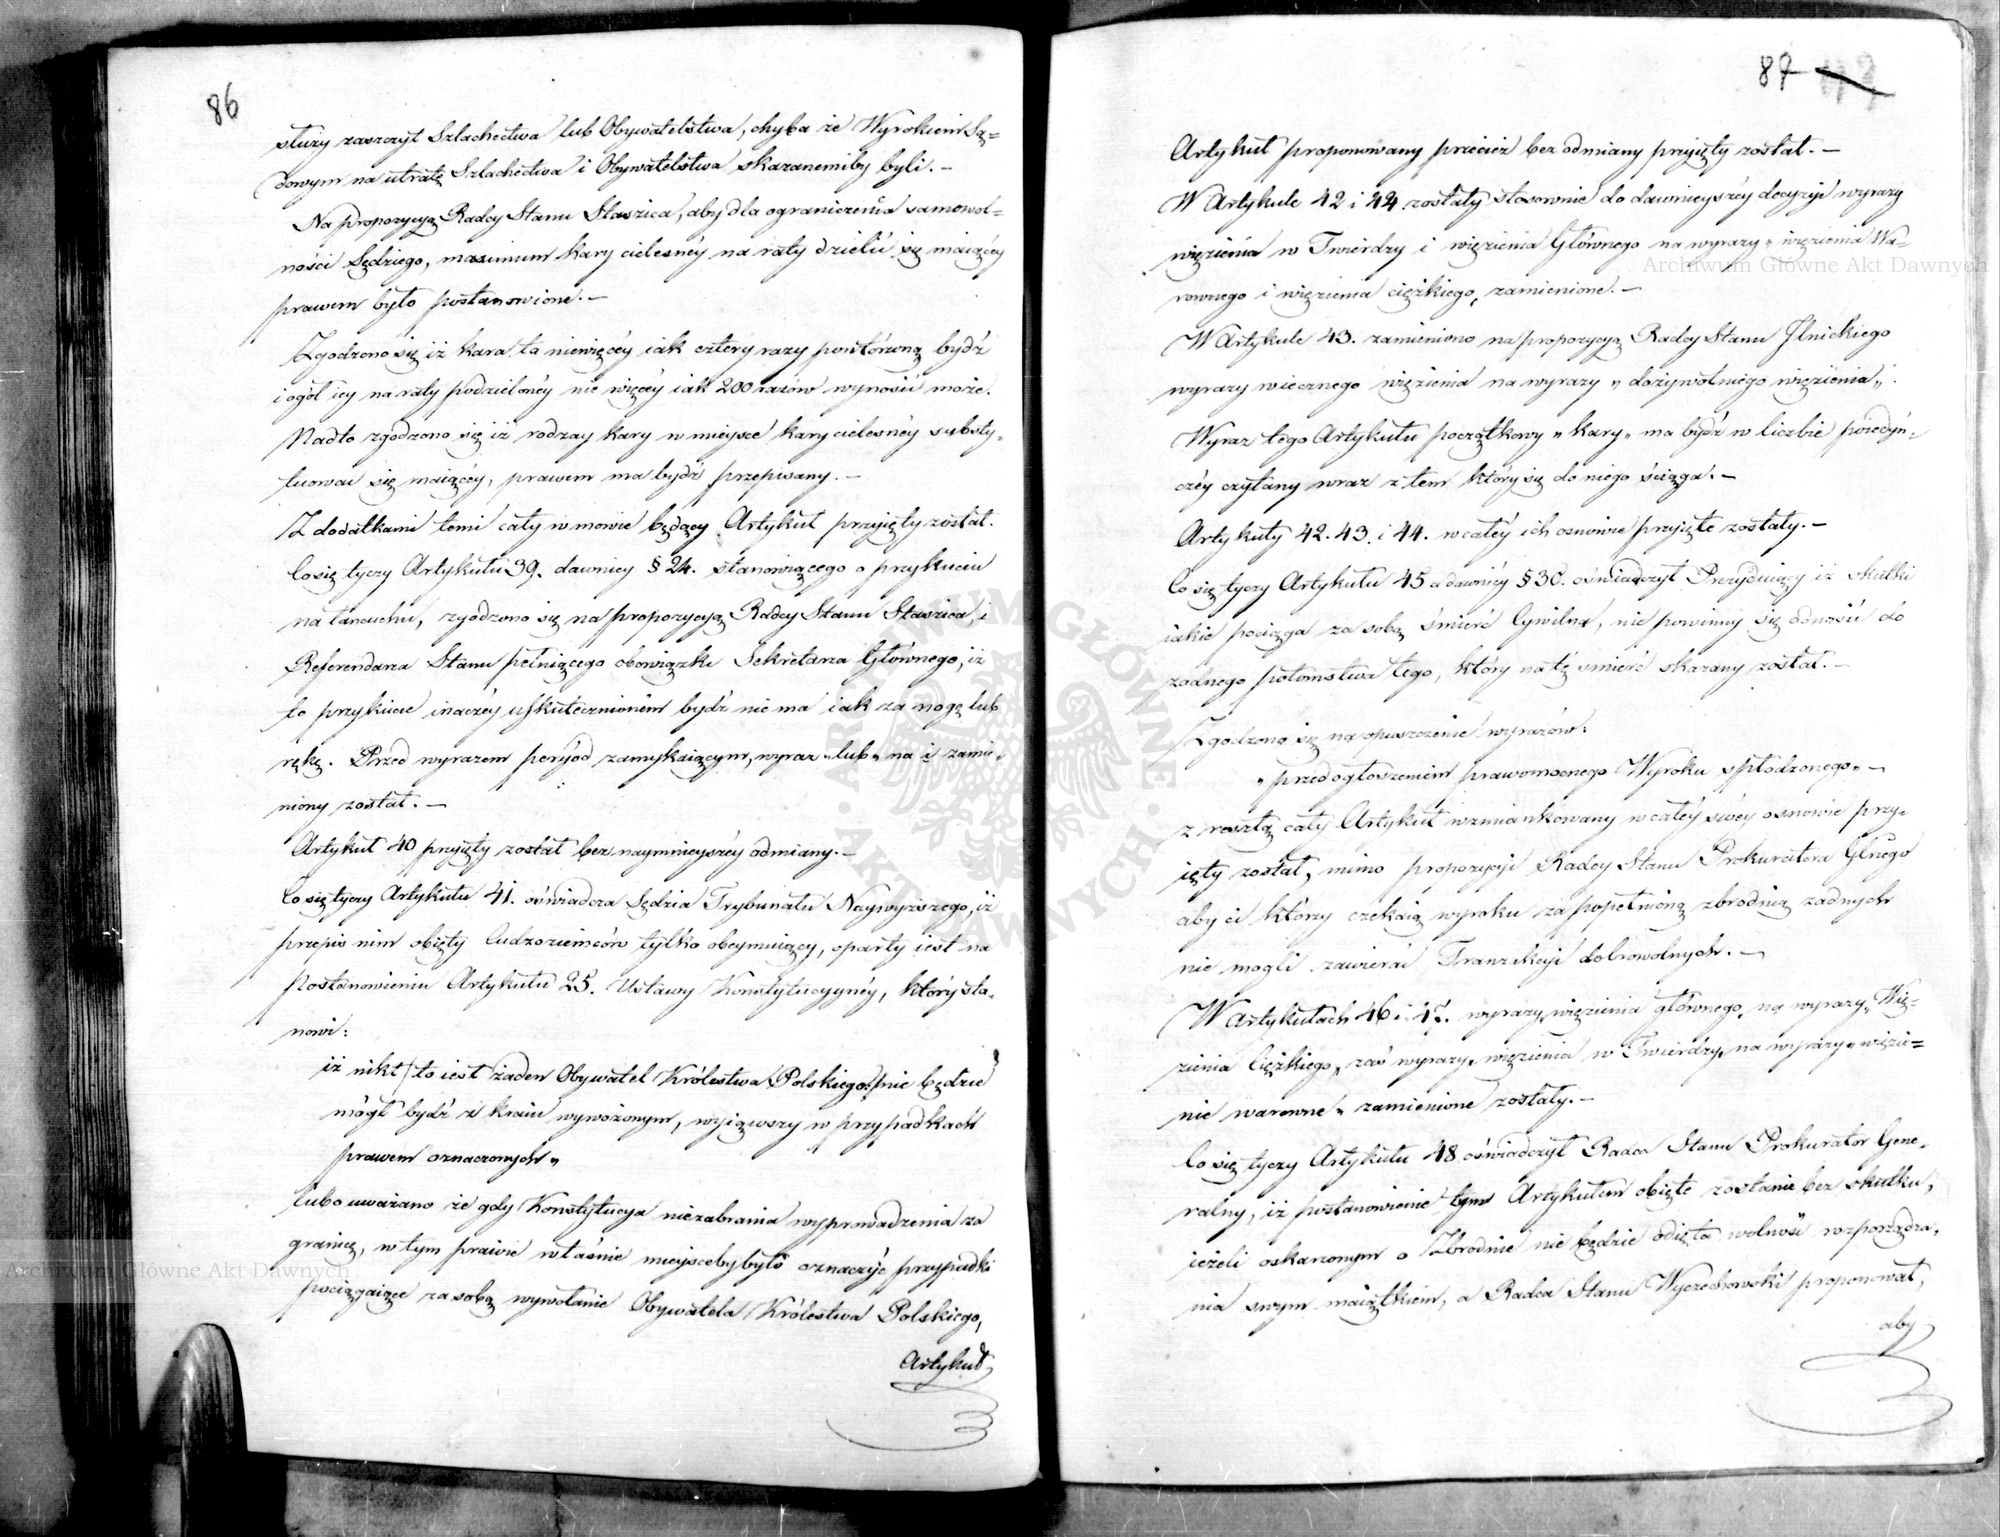 86
służy zaszczyt Szlachectwa lub Obywatelstwa, chyba że Wyrokiem Są=
dowym na utratę Szlachectwa i Obywatelstwa skazanemiby byli. –
Na propozycyą Radcy Stanu Staszica, aby dla ograniczenia samowol=
ności Sędziego, maximum kary cielesnéy na raty dzielić się maiącéy
prawem było postanowione. –
Zgodzono się iż kara ta niewięcéy iak cztery razy powtórzoną bydź
i ogół iey na raty podzielonéy nie więcéy iak 200 razów wynosić może.
Nadto zgodzono się iż rodzay kary w mieysce kary cielesnéy substy„
tuować się maiącéy, prawem ma bydź przepisany. –
Z dodatkami temi cały w mowie będący Artykuł przyięty został.
Co się tyczy Artykułu 39. dawniey § 24. stanowiącego o przykuciu
na łańcuchu, zgodzono się na propozycyą Radcy Stanu Staszica, i
Referendarza Stanu pełniącego obowiązki Sekretarza Głównego, iż
to przykucie inaczéy uskutecznioném bydź nie ma iak za nogę lub
rękę. Przed wyrazem peryod zamykaiącym, wyraz „lub„ na i zamie„
niony został. –
Artykuł 40 przyięty został bez naymnieyszéy odmiany. –
Co się tyczy Artykułu 41. oświadcza Sędzia Trybunału Naywyższego, iż
przepis nim obięty Cudzoziemców tylko obeymuiący, oparty iest na
Postanowieniu Artykułu 25. Ustawy Konstytucyynéy, który sta„
nowi:
iż nikt (to iest żaden Obywatel Królestwa Polskiego) nie będzie
mógł bydź z kraiu wywożonym, wyiąwszy w przypadkach
prawem oznaczonych„
lubo uważano że gdy Konstytucya niezabrania wyprowadzenia za
granicę, w tym prawie właśnie mieysceby było oznaczyć przypadki
pociągaiące za sobą wywołanie Obywatela Królestwa Polskiego,
Artykuł
87
Artykuł proponowany przecież bez odmiany przyięty został. –
W Artykule 42 i 44 zostały stosownie do dawnieyszéy decyzyi wyrazy
więzienia w Twierdzy i więzienia Głównego na wyrazy „ więzienia Wa=
rownego i więzienia ciężkiego„ zamienione. –
W Artykule 43. zamieniono na propozycyą Radcy Stanu Ilnickiego
wyrazy wiecznego więzienia na wyrazy „ dożywotniego więzienia„.
Wyraz tego Artykułu początkowy „ kary „ ma bydź w liczbie poiedyń„
czéy czytany wraz z tem który się do niego ściąga. –
Artykuły 42. 43. i 44. w całéy ich osnowie przyięte zostały. –
Co się tyczy Artykułu 45 a dawniéy § 30. oświadczył Prezyduiący iż skutki
iakie pociąga za sobą śmierć Cywilna, nie powinny się odnosić do
żadnego potomstwa tego, który na tę śmierć skazany został. –
Zgodzono się na opuszczenie wyrazów:
„ przed ogłoszeniem prawomocnego Wyroku spłodzonego„ –
z resztą cały Artykuł wzmiankowany w całéy swéy osnowie przy„
ięty został, mimo propozycyi Radcy Stanu Prokuratora Glnego
aby ci którzy czekaią wyroku za popełnioną zbrodnię żadnych
nie mogli zawierać Tranzakcyi dobrowolnych. –
W Artykułach 46 i 47. wyrazy „więzienia głównego„ na wyrazy „ Wię=
zienia Ciężkiego„ zaś wyrazy „ więzienia w Twierdzy„ na wyrazy „ więzie=
nie warowne „ zamienione zostały. –
Co się tyczy Artykułu 48 oświadczył Radca Stanu Prokurator Gene„
ralny, iż postanowienie tym Artykułem obięte zostanie bez skutku,
ieżeli oskarżonym o Zbrodnie nie będzie odięta wolność rozporządza„
nia swym maiątkiem, a Radca Stanu Wyczechowski proponował,
aby
Archiwum Główne Akt Dawnych
Archiwum Główne Akt Dawnych
ARCHIWUM GŁÓWNE · AKT DAWNYCH ·